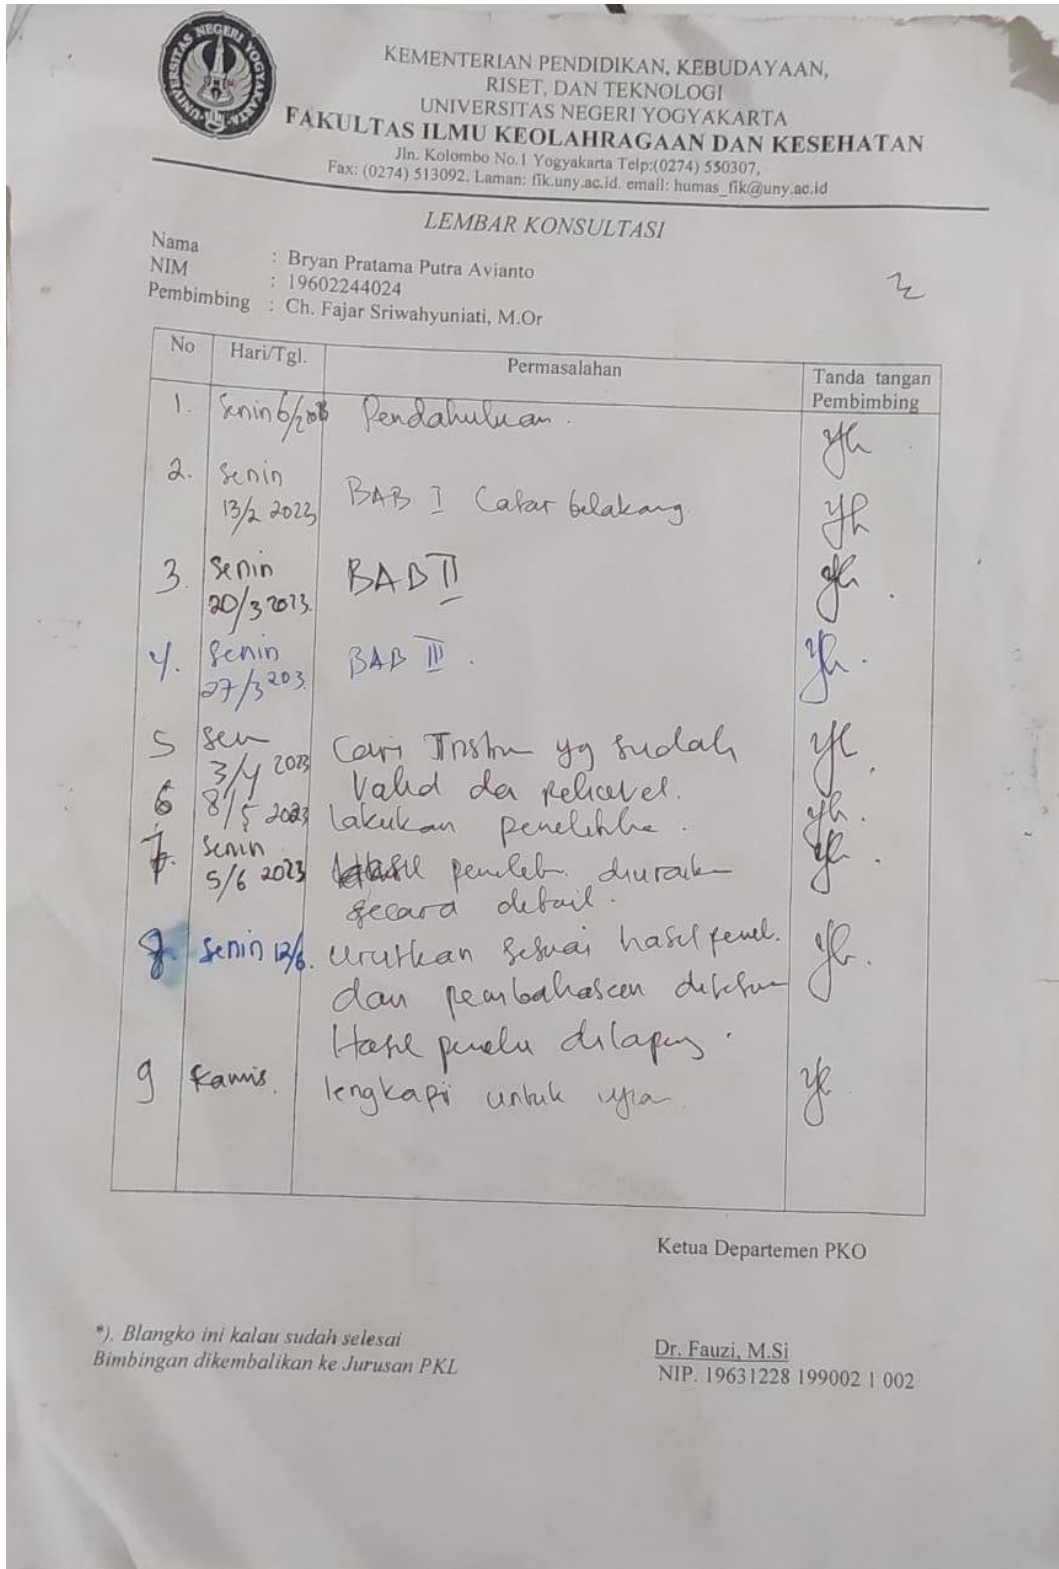 UNIVERSITAS NEGERI YOGYAKARTA
KEMENTERIAN PENDIDIKAN, KEBUDAYAAN,
RISET, DAN TEKNOLOGI
UNIVERSITAS NEGERI YOGYAKARTA
FAKULTAS ILMU KEOLAHRAGAAN DAN KESEHATAN
Jln. Kolombo No.1 Yogyakarta Telp:(0274) 550307,
Fax: (0274) 513092. Laman: fik.uny.ac.id. email: humas_fik@uny.ac.id
LEMBAR KONSULTASI
Nama : Bryan Pratama Putra Avianto
NIM : 19602244024
Pembimbing : Ch. Fajar Sriwahyuniati, M.Or
No Hari/Tgl. Permasalahan Tanda tangan
Pembimbing
1. Senin Pendahuluan.
2. Senin
13/2 2023 BAB I Latar belakang.
3. Senin BAB II
20/3 2023.
4. Senin BAB III.
27/3 203.
5 Sen Cari yg sudah
3/4 2023 Valid da
6 8/5 2023 lakukan
7. Senin
5/6 2023 diuraik
secara detail.
8. Senin 12/6. urutkan sesuai hasil penel.
dan pembahasan
Hasil
9 Kamis. lengkapi untuk
Ketua Departemen PKO
*). Blangko ini kalau sudah selesai
Bimbingan dikembalikan ke Jurusan PKL
Dr. Fauzi, M.Si
NIP. 19631228 199002 1 002